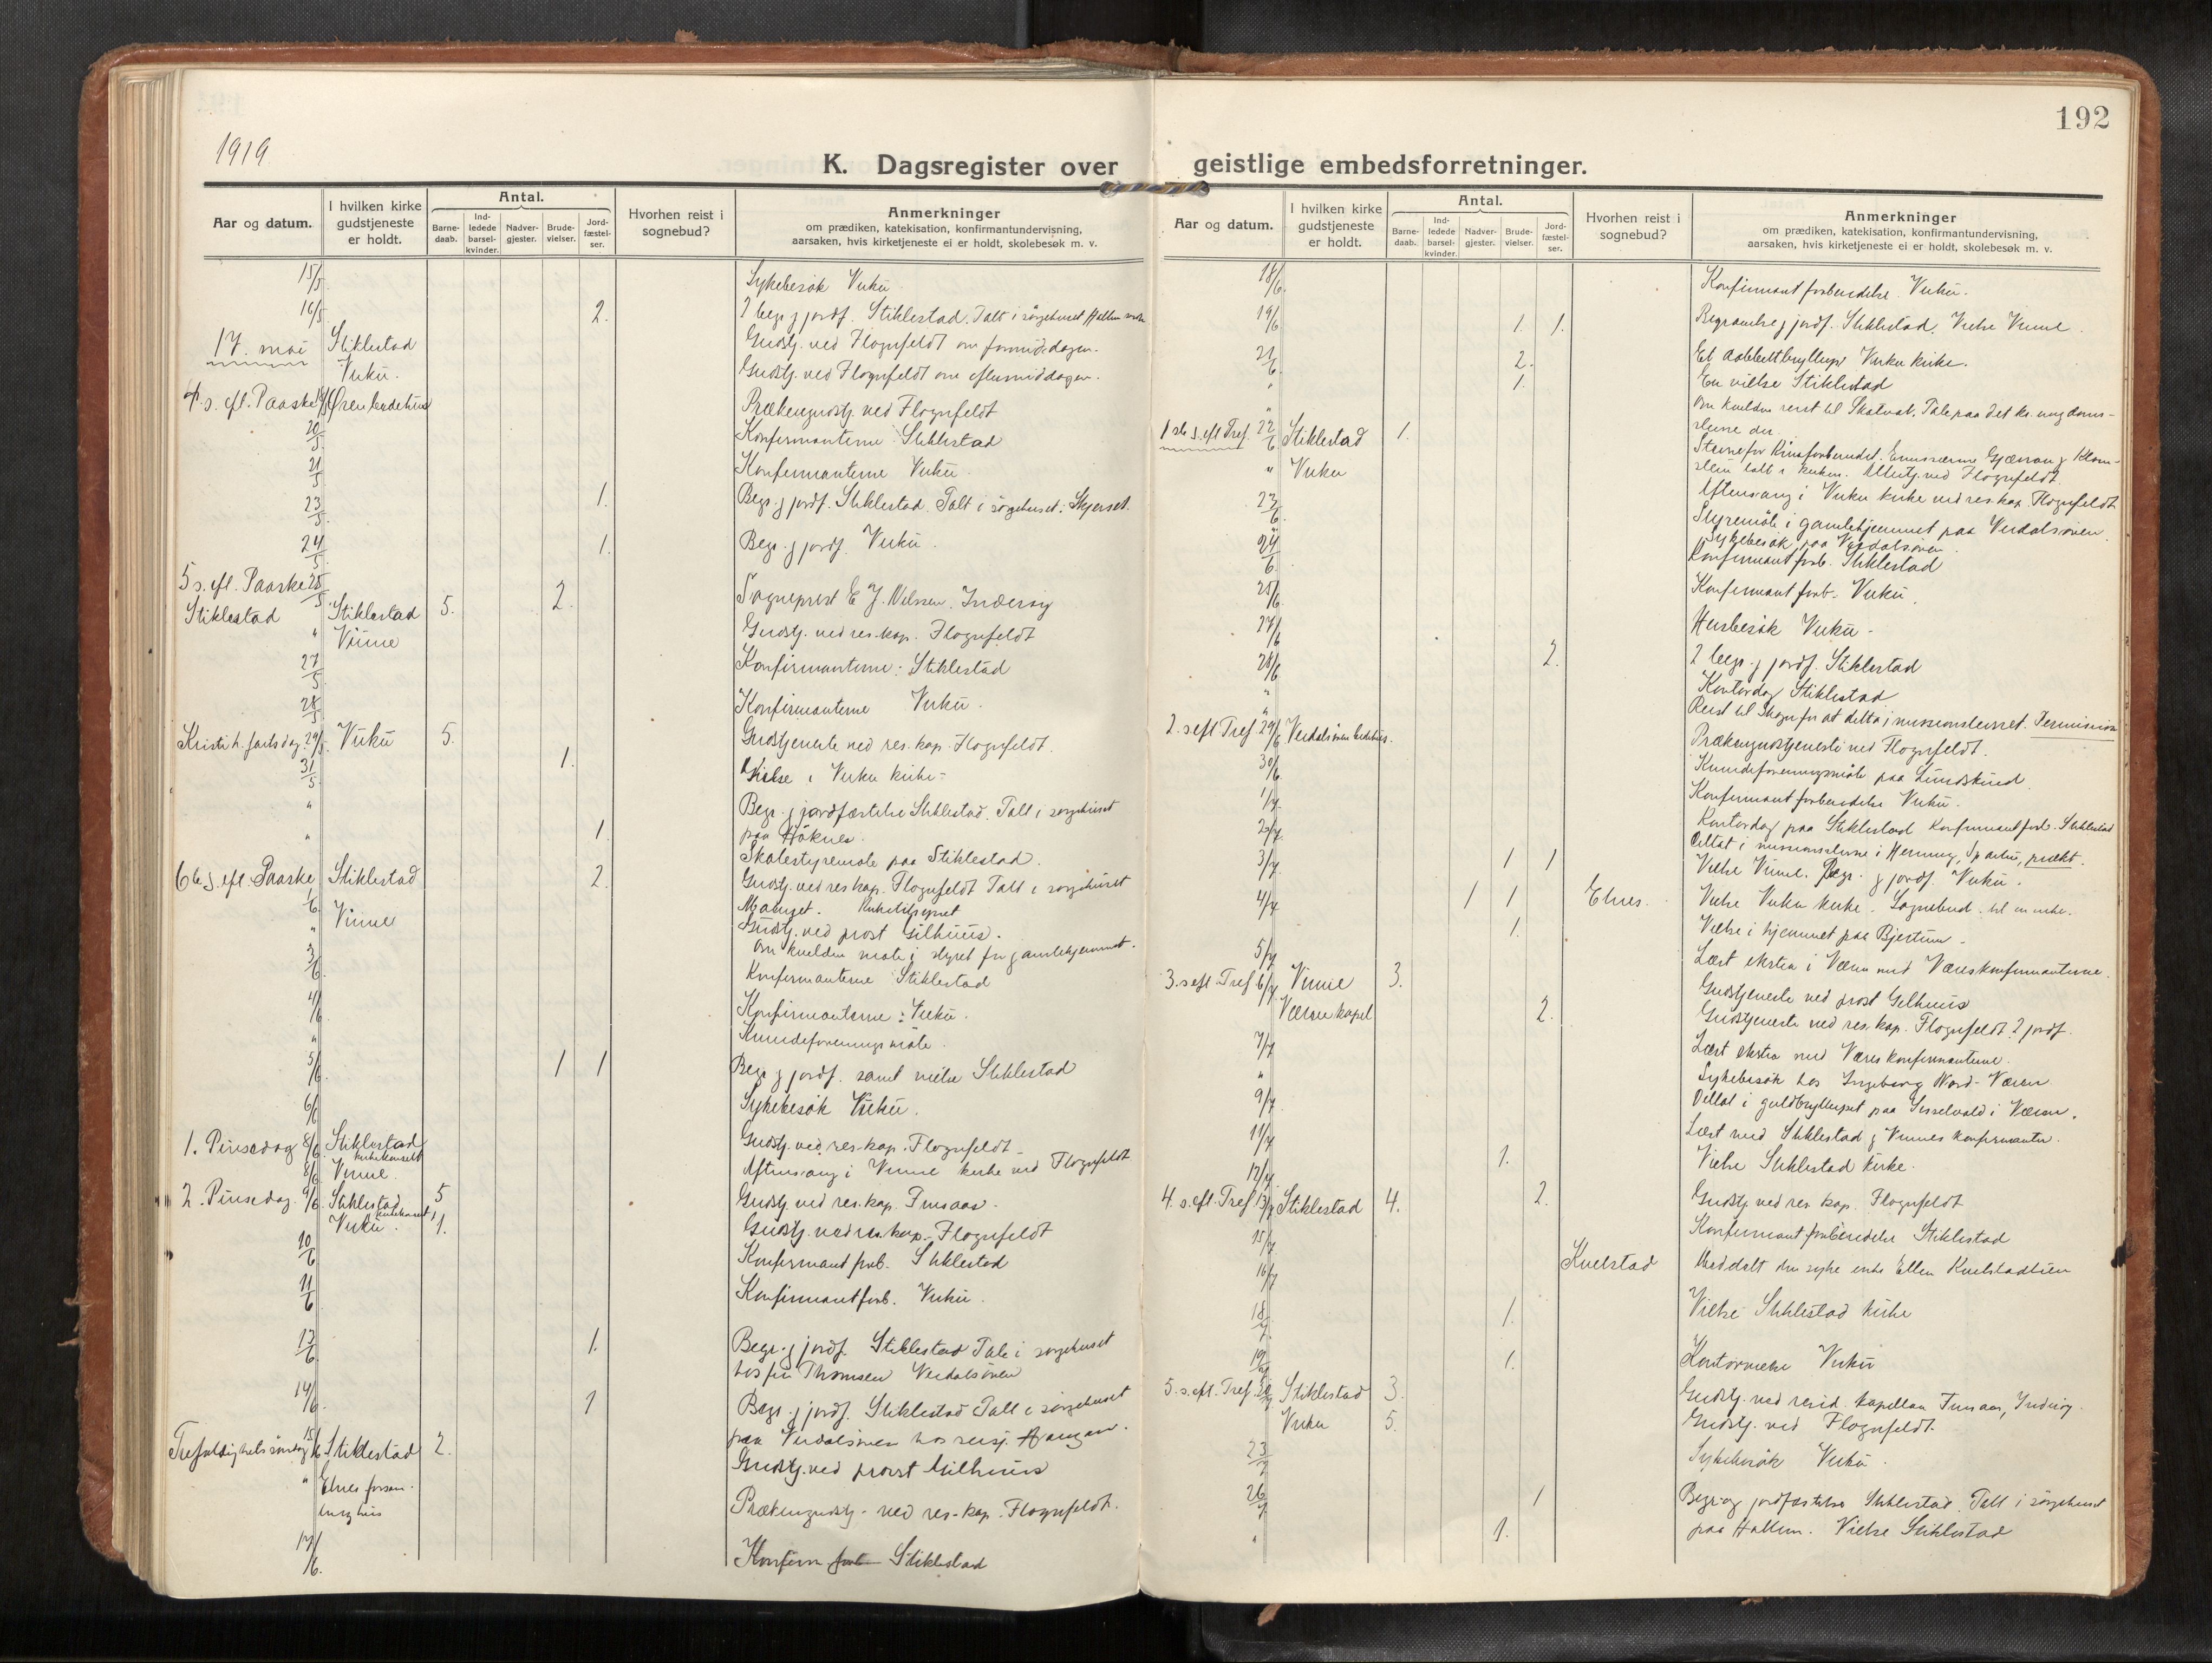 192
1919
K. Dagsregister over geistlige embedsforretninger.
Aar og datum.
I hvilken kirke gudstjeneste er holdt.
Antal.
Barne-daab.
Ind-ledede barsel-kvinder.
Nadver-gjester.
Brude-vielser.
Jord-fæstel-ser.
Hvorhen reist i sognebud?
Anmerkninger
om prædiken, katekisation, konfirmantundervisning,
aarsaken, hvis kirketjeneste ei er holdt, skolebesøk m. v.
15/5 Sykebesøk Vuku
16/5 2. 2 begr. g jordf. Stiklestad. Talt i sørgehuset Hallem
17. mai Stiklestad Gudstj. ved Flognfeldt om formiddagen.
Vuku. Gudstj. ved Flognfeldt om eftermiddagen.
4. s. eft. Paaske Ørenbedehus Prækengudstj. ved Flognfeldt
20/5 Konfirmanterne Stiklestad
21/5 Konfirmanterne Vuku
23/5 1. Begr. g jordf. Stiklestad. Talt i sørgehuset.
24/5 1. Begr. g jordf. Vuku.
5 s. eft. Paaske 25/5
Stiklestad Stiklestad 5. 2. Sogneprest E J. Nilssen. Inderøy
" Vinne Gudstj. ved res. kap. Flognfeldt
27/5 Konfirmanterne: Stiklestad
28/5 Konfirmanterne Vuku.
Kristi h. fartsdag 29/5 Vuku 5. Gudstjeneste ved res. kap. Flognfeldt.
31/5 1. Vielse i Vuku kirke-
" Begr. g jordfæstelse Stiklestad. Talt i sørgehuset
" 1. paa
Skolestyremøte paa Stiklestad.
6te s. eft. Paaske Stiklestad 2. Gudstj. ved res. kap. Flognfeldt Talt i sørgehuset
1/6 Kirketilsynet
" Vinne Gudstj. ved prost Gilhuus.
Om kvelden møte i styret for gamlehjemmet.
3/6 Konfirmanterne Stiklestad
4/6 Konfirmanterne: Vuku.
" Kvindeforeningsmøte.
5/6 1 1 Begr. g jordf. samt vielse Stiklestad
6/6 Sykebesøk Vuku.
1. Pinsedag 8/6 Stiklestad Gudstj. ved res. kap. Flognfeldt -
kirkekonsert
8/6 Vinne. Aftensang i Vinne kirke ved Flognfeldt
2. Pinsedag. 9/6 Stiklestad 5 Gudstj. ved res. kap. Finsaas.
Vuku. 1. Gudstj. ved res. kap. Flognfeldt
10/6 Konfirmant forb. Stiklestad
11/6 Konfirmantforb. Vuku.
13/6 1. Begr. g jordf. Stiklestad Tale i sørgehuset
hos fru Thomsen Verdalsøren
14/6 1 Begr. g jordf. Stiklestad Talt i sørgehuset
paa Verdalsøren hos
Trefoldighets søndag 15/6 Stiklestad 2. Gudstj. ved provst Gilhuus
" Elnes forsam-
lingshus Prækengudstj. ved res. kap. Flognfeldt.
17/6 Konfirm forb Stiklestad
Aar og datum.
I hvilken kirke gudstjeneste er holdt.
Antal.
Barne-daab.
Ind-ledede barsel-kvinder.
Nadver-gjester.
Brude-vielser.
Jord-fæstel-ser.
Hvorhen reist i sognebud?
Anmerkninger
om prædiken, katekisation, konfirmantundervisning,
aarsaken, hvis kirketjeneste ei er holdt, skolebesøk m. v.
18/6 Konfirmant forberedelse Vuku.
19/6 1. 1. Begravelse g jordf. Stiklestad. Vielse Vinne.
21/6 2. Et dobbeltbryllup Vuku kirke.
" 1. En vielse Stiklestad
" Om kvelden reist til Skatval. Tale paa det kr. ungdoms-
stevne der.
1ste s. eft Tref. 22/6 Stiklestad 1. Stevne for Kinaforbundet.
" Vuku talt i kirken. Altertj. ved Flognfeldt.
Aftensang i Vuku kirke ved res. kap. Flognfeldt
23/6 Styremøte i gamlehjemmet paa Verdalsøren.
Sykebesøk paa Verdalsøren.
24/6 Konfirmant forb. Stiklestad
25/6 Konfirmant forb. Vuku.
27/6 Husbesøk Vuku -
28/6 2. 2 begr. g jordf. Stiklestad
" Kontordag Stiklestad
" Reist til Skogn for at delta i missionsstevnet.
2. s eft Tref 29/6 Verdalsøren bedehus. Prækengudstjeneste ved Flognfeldt.
30/6 Kvindeforeningsmøte paa
1/7 Konfirmant forberedelse Vuku.
2/7 Kontordag paa Stiklestad Konfirmantforb. Stiklestad
Deltat i missionsstevne i Henning, Sparbu, prækt.
3/7 1 1 Vielse Vinne. Begr. g jordf. Vuku.
4/7 1 1 Elnes. Vielse Vuku kirke. Sognebud til en enke.
1. Vielse i hjemmet paa Bjertum -
5/7 Læst ekstra i Væren med Væreskonfirmanterne.
3. s eft Tref 6/7 Vinne 3. Gudstjeneste ved prost Gilhuus
Væren kapel 2. Gudstjeneste ved res. kap. Flognfeldt 2 jordf.
7/7 Læst ekstra med Væreskonfirmanterne.
" Sykebesøk hos Ingeborg Nord-Væren
9/7 Deltat i guldbryllupet paa i Væren.
11/7 Læst med Stiklestad g Vinnes konfirmanter.
12/7 1. Vielse Stiklestad kirke.
4. s. eft. Tref 13/7 Stiklestad 4. 2. Gudstj. ved res. kap. Flognfeldt
15/7 Konfirmant forberedelse Stiklestad
16/7 Kvelstad Meddelt den syke enke Ellen Kvelstadlien
18/7 1. Vielse Stiklestad kirke
19/7 1. Kontorvielse Vuku
5. s. eft. Tref. 20/7 Stiklestad 3. Gudstj. ved resid. kapellan Finsaas, Inderøy.
Vuku 5. Gudstj. ved Flognfeldt.
23/7 Sykebesøk Vuku.
26/7 1 Begr. og jordfæstelse Stiklestad. Talt i sørgehuset
" 1. paa Hallem. Vielse Stiklestad